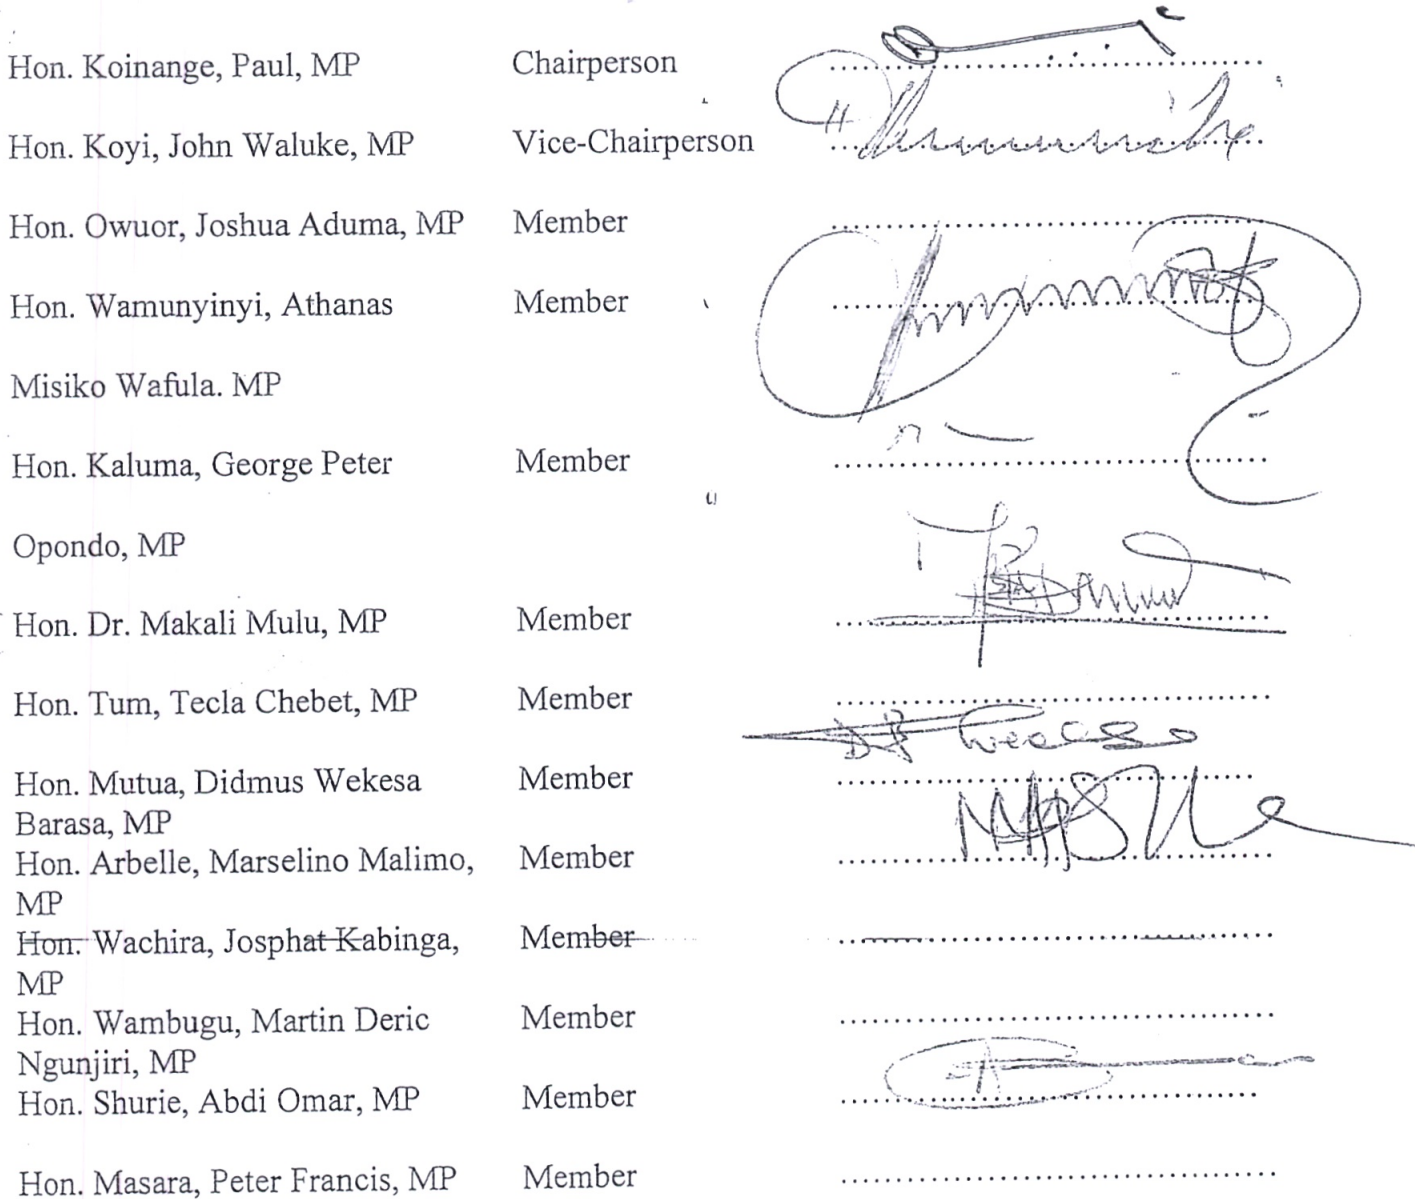 Hon. Koinange, Paul, MP Chairperson
Hon. Koyi, John Waluke, MP Vice-Chairperson
Hon. Owuor, Joshua Aduma, MP Member
Hon. Wamunyinyi, Athanas Member
Misiko Wafula. MP
Hon. Kaluma, George Peter Member
Opondo, MP
Hon. Dr. Makali Mulu, MP Member
Hon. Tum, Tecla Chebet, MP Member
Hon. Mutua, Didmus Wekesa Member
Barasa, MP
Hon. Arbelle, Marselino Malimo, Member
MP
Hon. Wachira, Josphat Kabinga, Member
MP
Hon. Wambugu, Martin Deric Member
Ngunjiri, MP
Hon. Shurie, Abdi Omar, MP Member
Hon. Masara, Peter Francis, MP Member